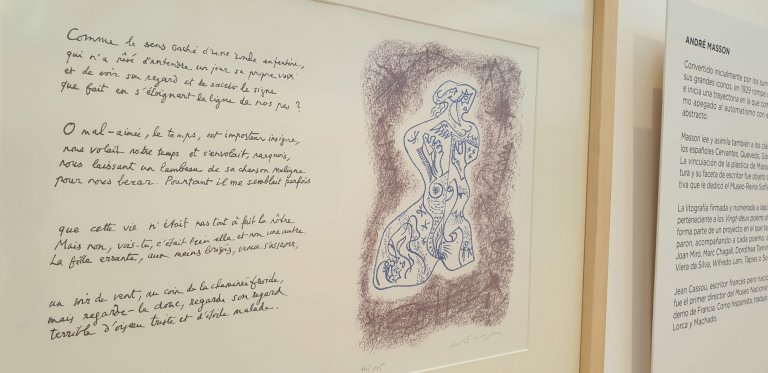 Comme le sens caché d'une ronde enfantine,
qui n'a rêvé d'entendre un jour sa propre voix
et de voir son regard et de saisir le signe
que fait en s'éloignant la ligne de nos pas ?
O mal-aimée, le temps, cet imposteur insigne,
nous volait notre temps et s'envolait, narquois,
nous laissant un lambeau de sa chanson maligne
pour nous bercer. Pourtant il me semblait parfois
que cette vie n'était pas tout à fait la nôtre
Mais non, vois-tu, c'était bien elle et non une autre.
La fille errante, aux mains brisées, venue s'asseoir,
un soir de vent, au coin de la cheminée froide,
mais regarde-la donc, regarde son regard
terrible d'oiseau triste et d'étoile malade.
ANDRÉ MASSON
Convertido inicialmente por los
sus grandes íconos, en 1929 rompe
e inicia una trayectoria en la que
mo apegado al automatismo con
abstracto.
Masson lee y asimila también a los
los españoles Cervantes, Quevedo,
La vinculación de la plástica de
tura y su faceta de escritor fue objeto
tiva que le dedicó el Museo Reina
La litografía firmada y numerada a
perteneciente a los Vingt-deux poems
forma parte de un proyecto en el que
paron, acompañando a cada poema,
Joan Miró, Marc Chagall, Dorothea
Viera da Silva, Wifredo Lam, Tàpies o
Jean Cassou, escritor francés pero
fue el primer director del Museo
derno de Francia. Como hispanista,
Lorca y Machado.